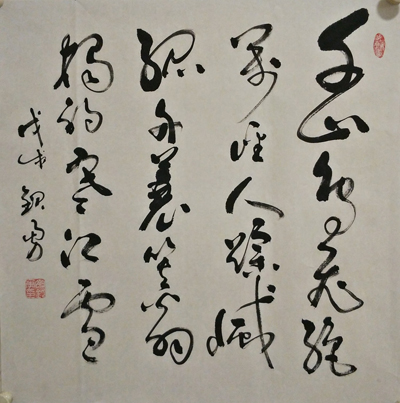 千山鳥飛絕
萬徑人蹤滅
孤舟蓑笠翁
獨釣寒江雪
戊戌